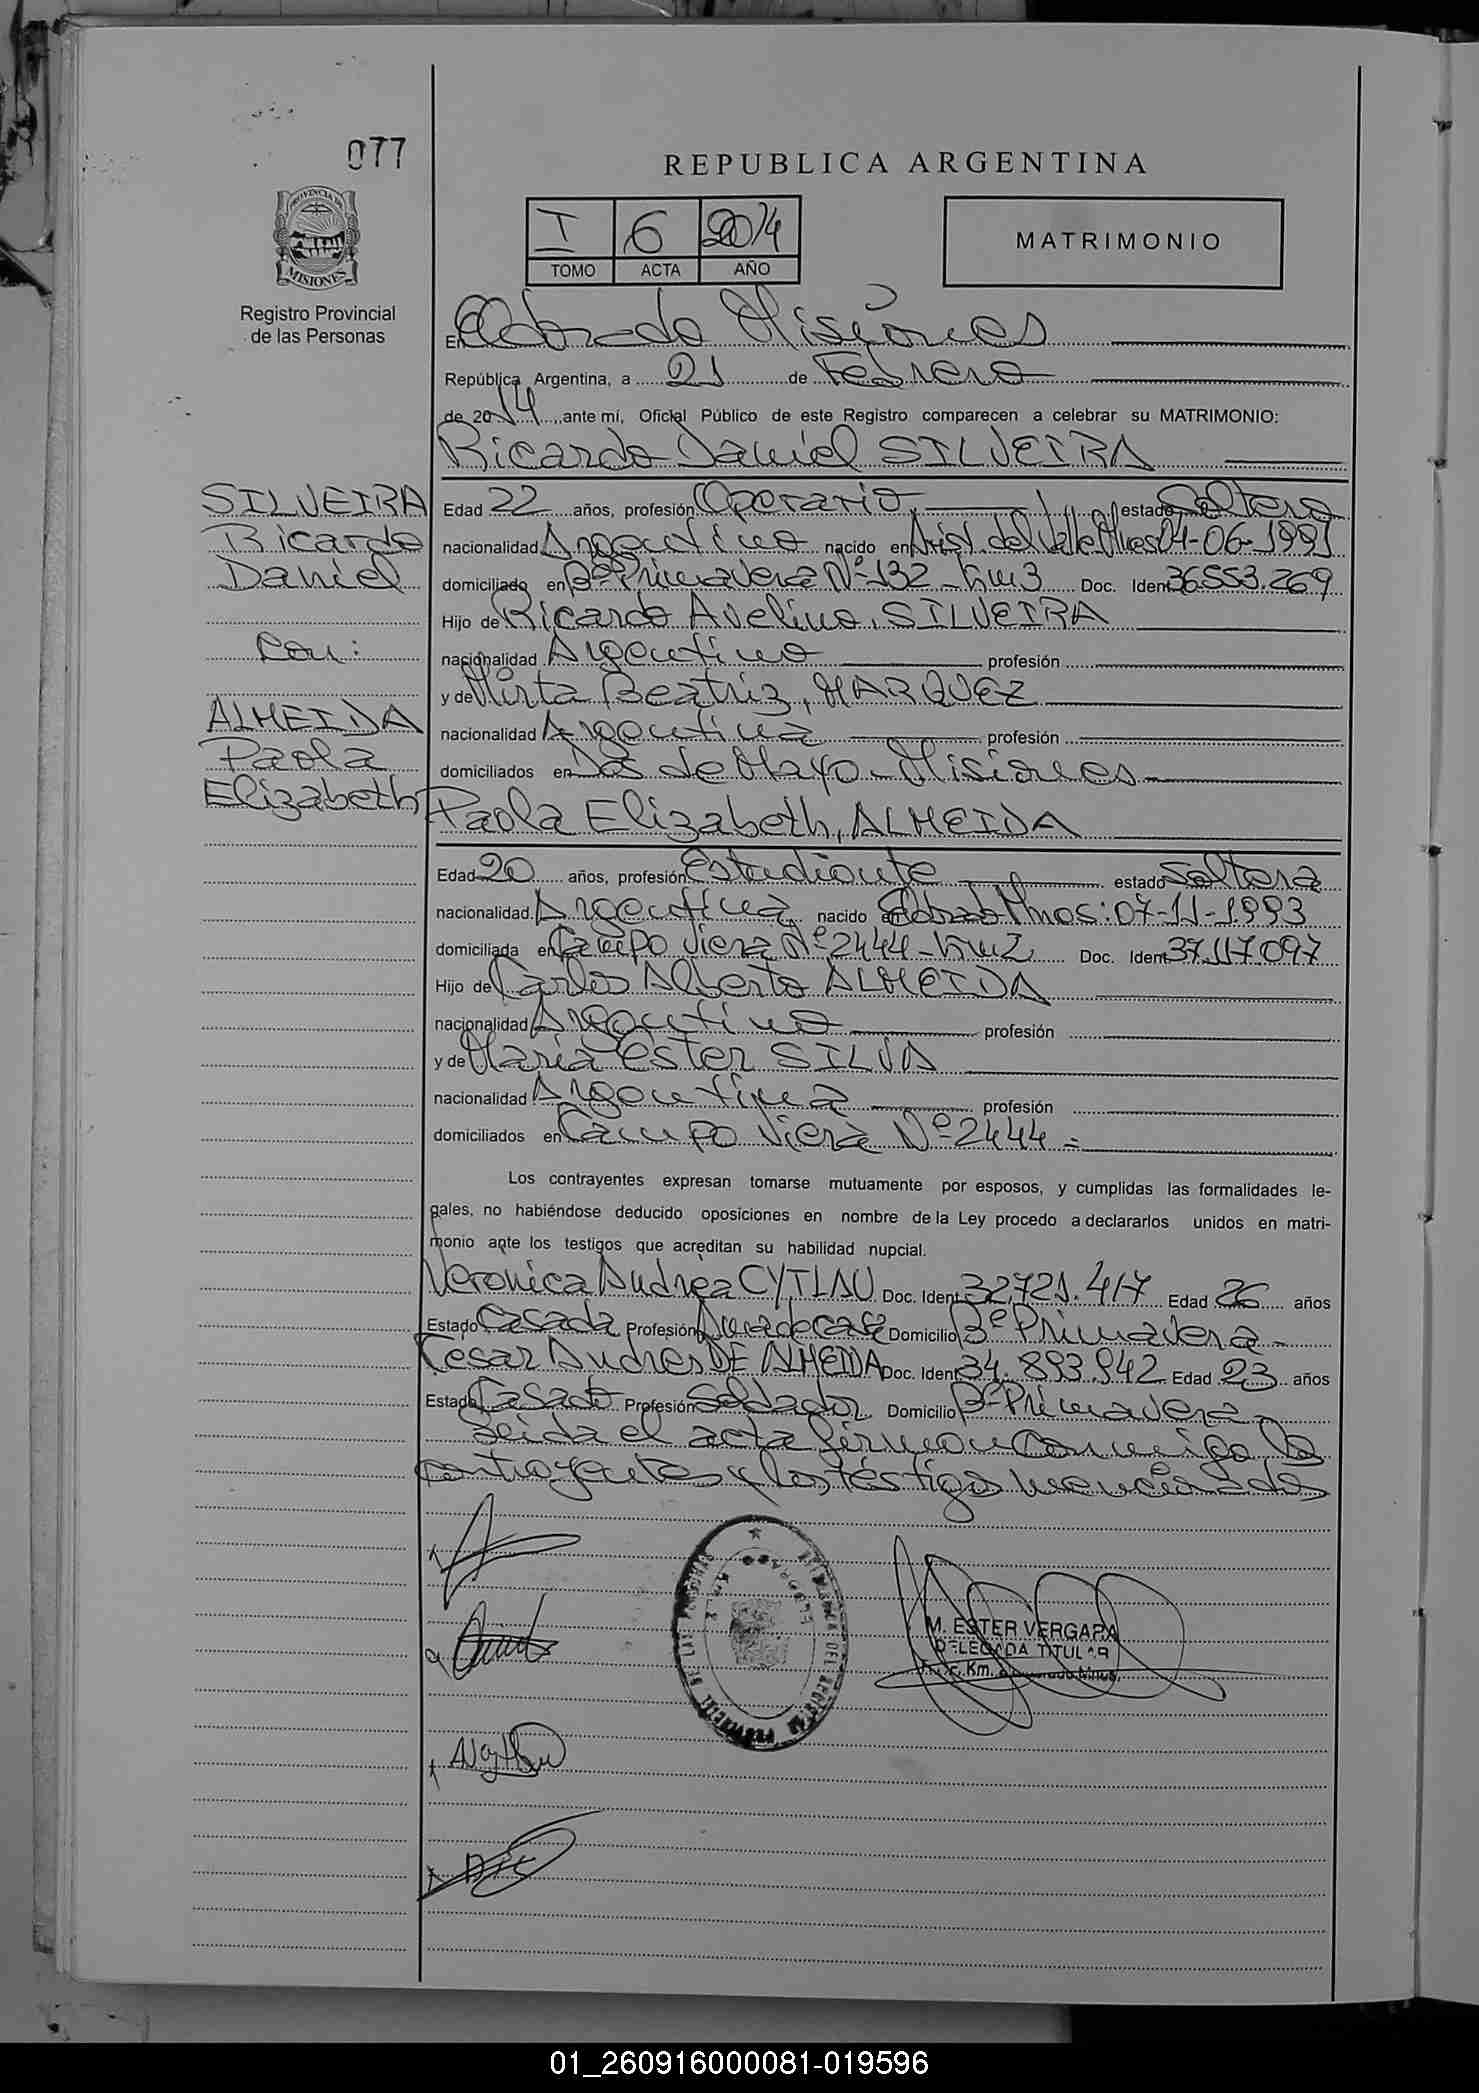 077
REPUBLICA ARGENTINA
PROVINCIA DE
MISIONES
Registro Provincial
de las Personas
I 6 2014
TOMO ACTA AÑO
MATRIMONIO
En Eldorado Misiones
República Argentina, a 21 de Febrero
de 2014, ante mí, Oficial Público de este Registro comparecen a celebrar su MATRIMONIO:
Ricardo Daniel SILVEIRA
SILVEIRA
Ricardo
Daniel
Con:
ALMEIDA
Paola
Elizabeth
Edad 22 años, profesión Operario estado Soltero
nacionalidad Argentino nacido en Arist. del Valle Mnes 04-06-1991
domiciliado en Bº Primavera Nº 132 - Km 3 Doc. Ident 36.553.269
Hijo de Ricardo Avelino, SILVEIRA
nacionalidad Argentino profesión
y de Mirta Beatriz, MARQUEZ
nacionalidad Argentina profesión
domiciliados en Dos de Mayo - Misiones
Paola Elizabeth, ALMEIDA
Edad 20 años, profesión Estudiante estado Soltera
nacionalidad Argentina nacido en Eldorado Mnes: 07-11-1993
domiciliada en Campo Viera Nº 2444 - Km 2 Doc. Ident 37.117.097
Hijo de Carlos Alberto ALMEIDA
nacionalidad Argentino profesión
y de Maria Ester SILVA
nacionalidad Argentina profesión
domiciliados en Campo Viera Nº 2444 =
Los contrayentes expresan tomarse mutuamente por esposos, y cumplidas las formalidades le-
gales, no habiéndose deducido oposiciones en nombre de la Ley procedo a declararlos unidos en matri-
monio ante los testigos que acreditan su habilidad nupcial.
Veronica Andrea CYTLAU Doc. Ident 32.721.417 Edad 26 años
Estado Casada Profesión Ama de casa Domicilio Bº Primavera -
Cesar Andres DE ALMEIDA Doc. Ident 34.893.942 Edad 23 años
Estado Casado Profesión Soldador Domicilio Bº Primavera -
Leida el acta firman conmigo los
contrayentes y los testigos mencionados
M. ESTER VERGARA
DELEGADA TITULAR
01_260916000081-019596